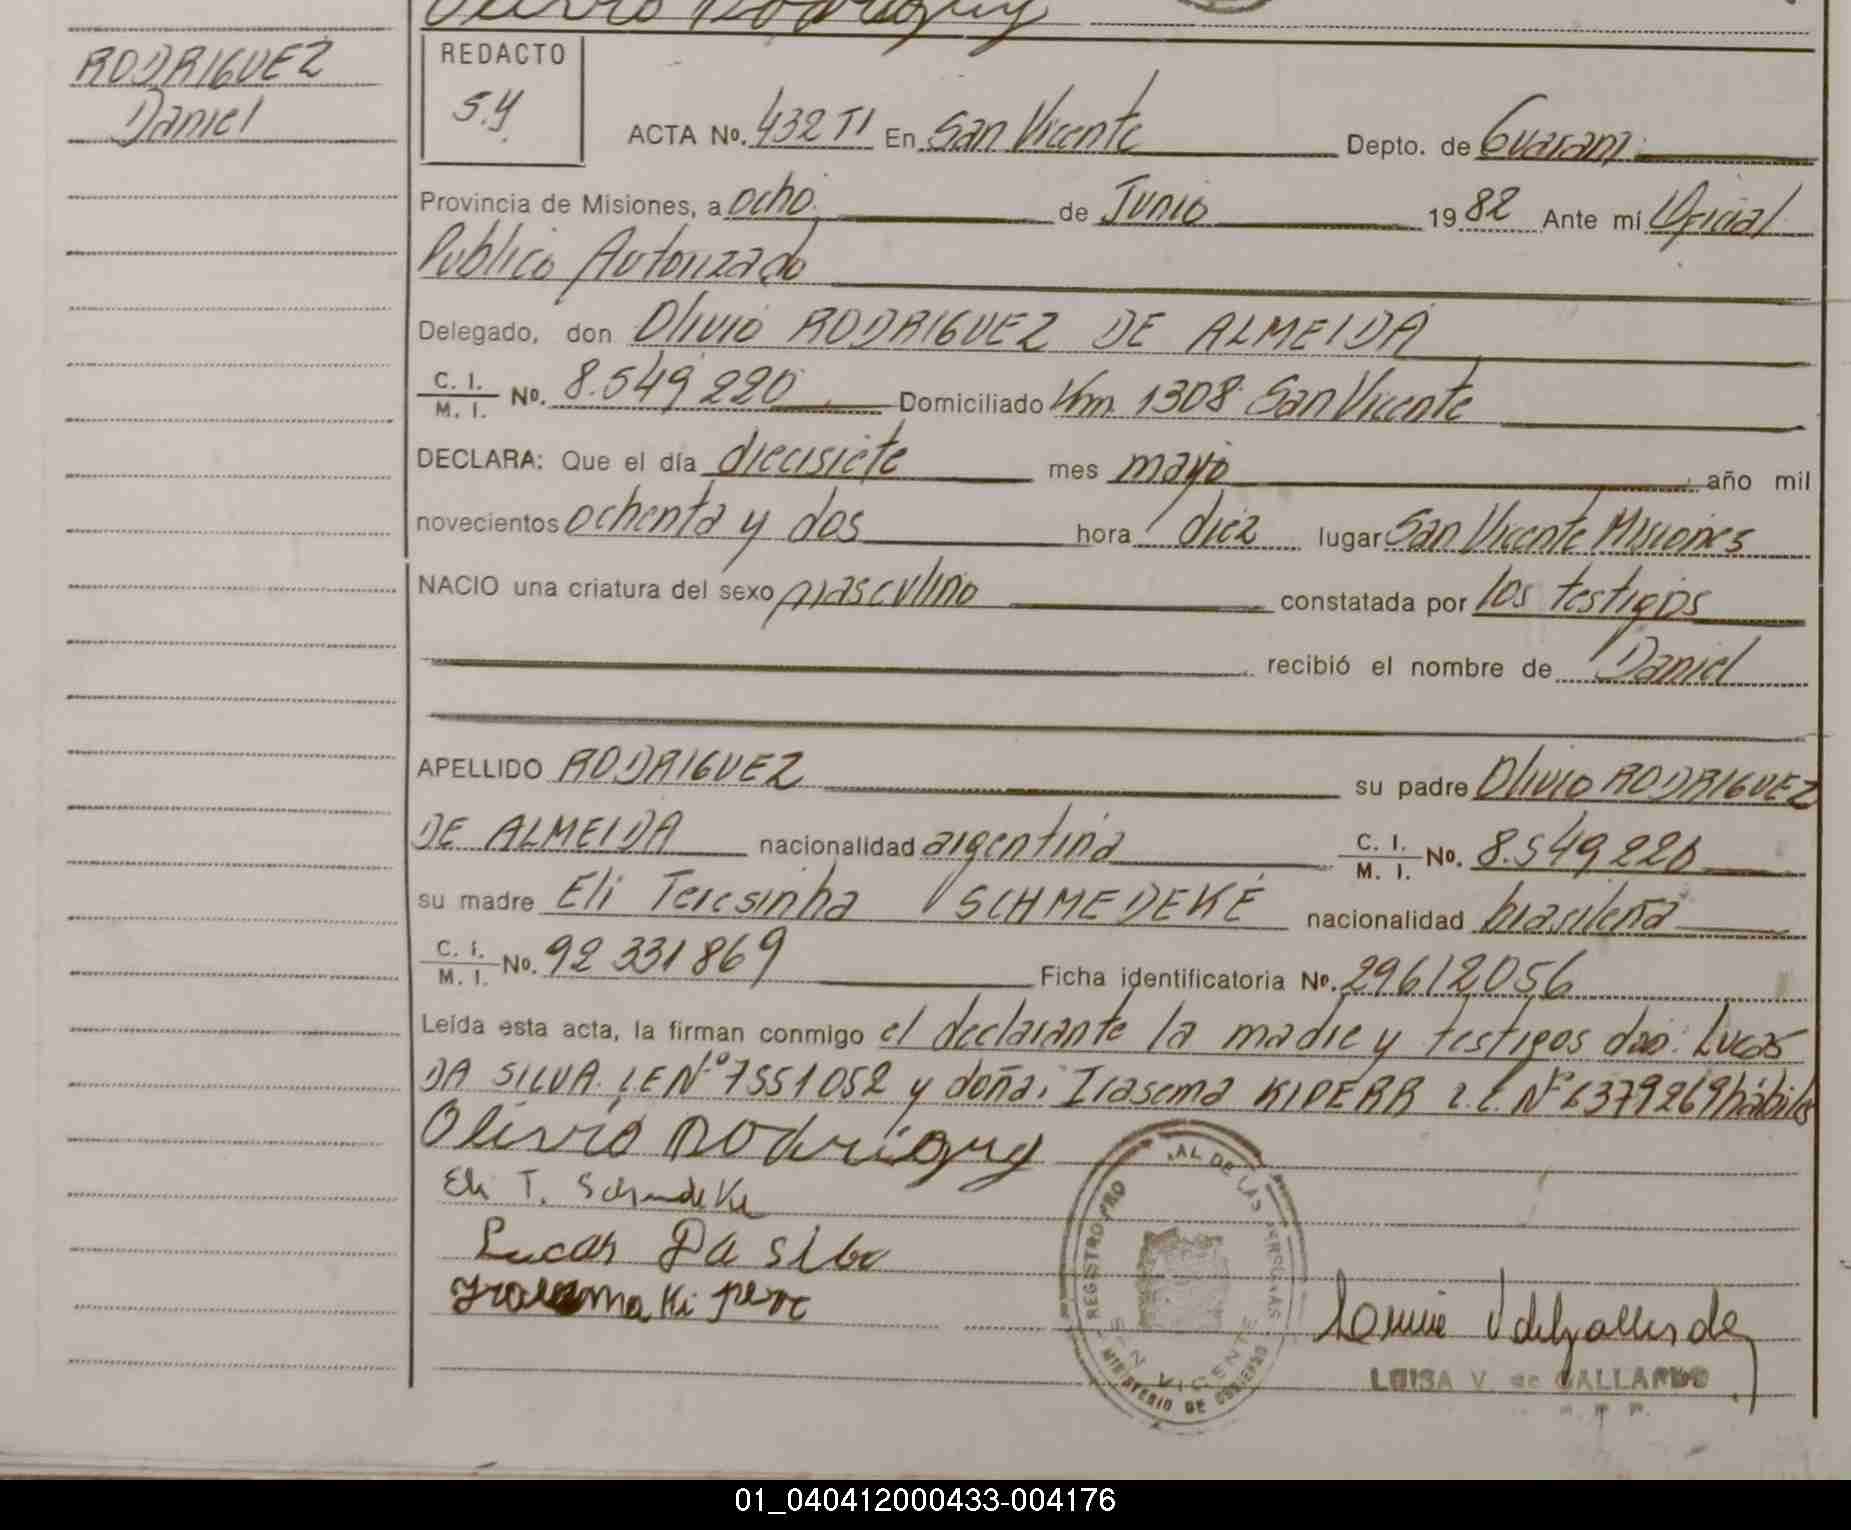 Olivio Rodriguez
RODRIGUEZ
Daniel
REDACTO
S.Y.
ACTA No. 432 TI En San Vicente Depto. de Guarani
Provincia de Misiones, a ocho de Junio 1982 Ante mí Oficial
Publico Autorizado
Delegado, don Olivio RODRIGUEZ DE ALMEIDA
C. I. / M. I. No. 8.549.220 Domiciliado Km. 1308 San Vicente
DECLARA: Que el día diecisiete mes mayo año mil
novecientos ochenta y dos hora diez lugar San Vicente Misiones
NACIO una criatura del sexo masculino constatada por los testigos
recibió el nombre de Daniel
APELLIDO RODRIGUEZ su padre Olivio RODRIGUEZ
DE ALMEIDA nacionalidad argentina C. I. / M. I. No. 8.549.220
su madre Eli Teresinha SCHMEDEKE nacionalidad brasileña
C. I. / M. I. No. 92 331869 Ficha identificatoria No. 29612056
Leída esta acta, la firman conmigo el declarante la madre y testigos don: Lucas
DA SILVA L.E Nº 7551052 y doña: Irasema KIPERR L.C. Nº 6379269 hábiles
Olivio Rodriguez
Eli T. Schmedeke
Lucas Da silva
Ki perr
REGISTRO PRO AL DE LAS PERSONAS
SAN VICENTE
MINISTERIO DE GOBIERNO
LUISA V. de GALLARDO
01_040412000433-004176